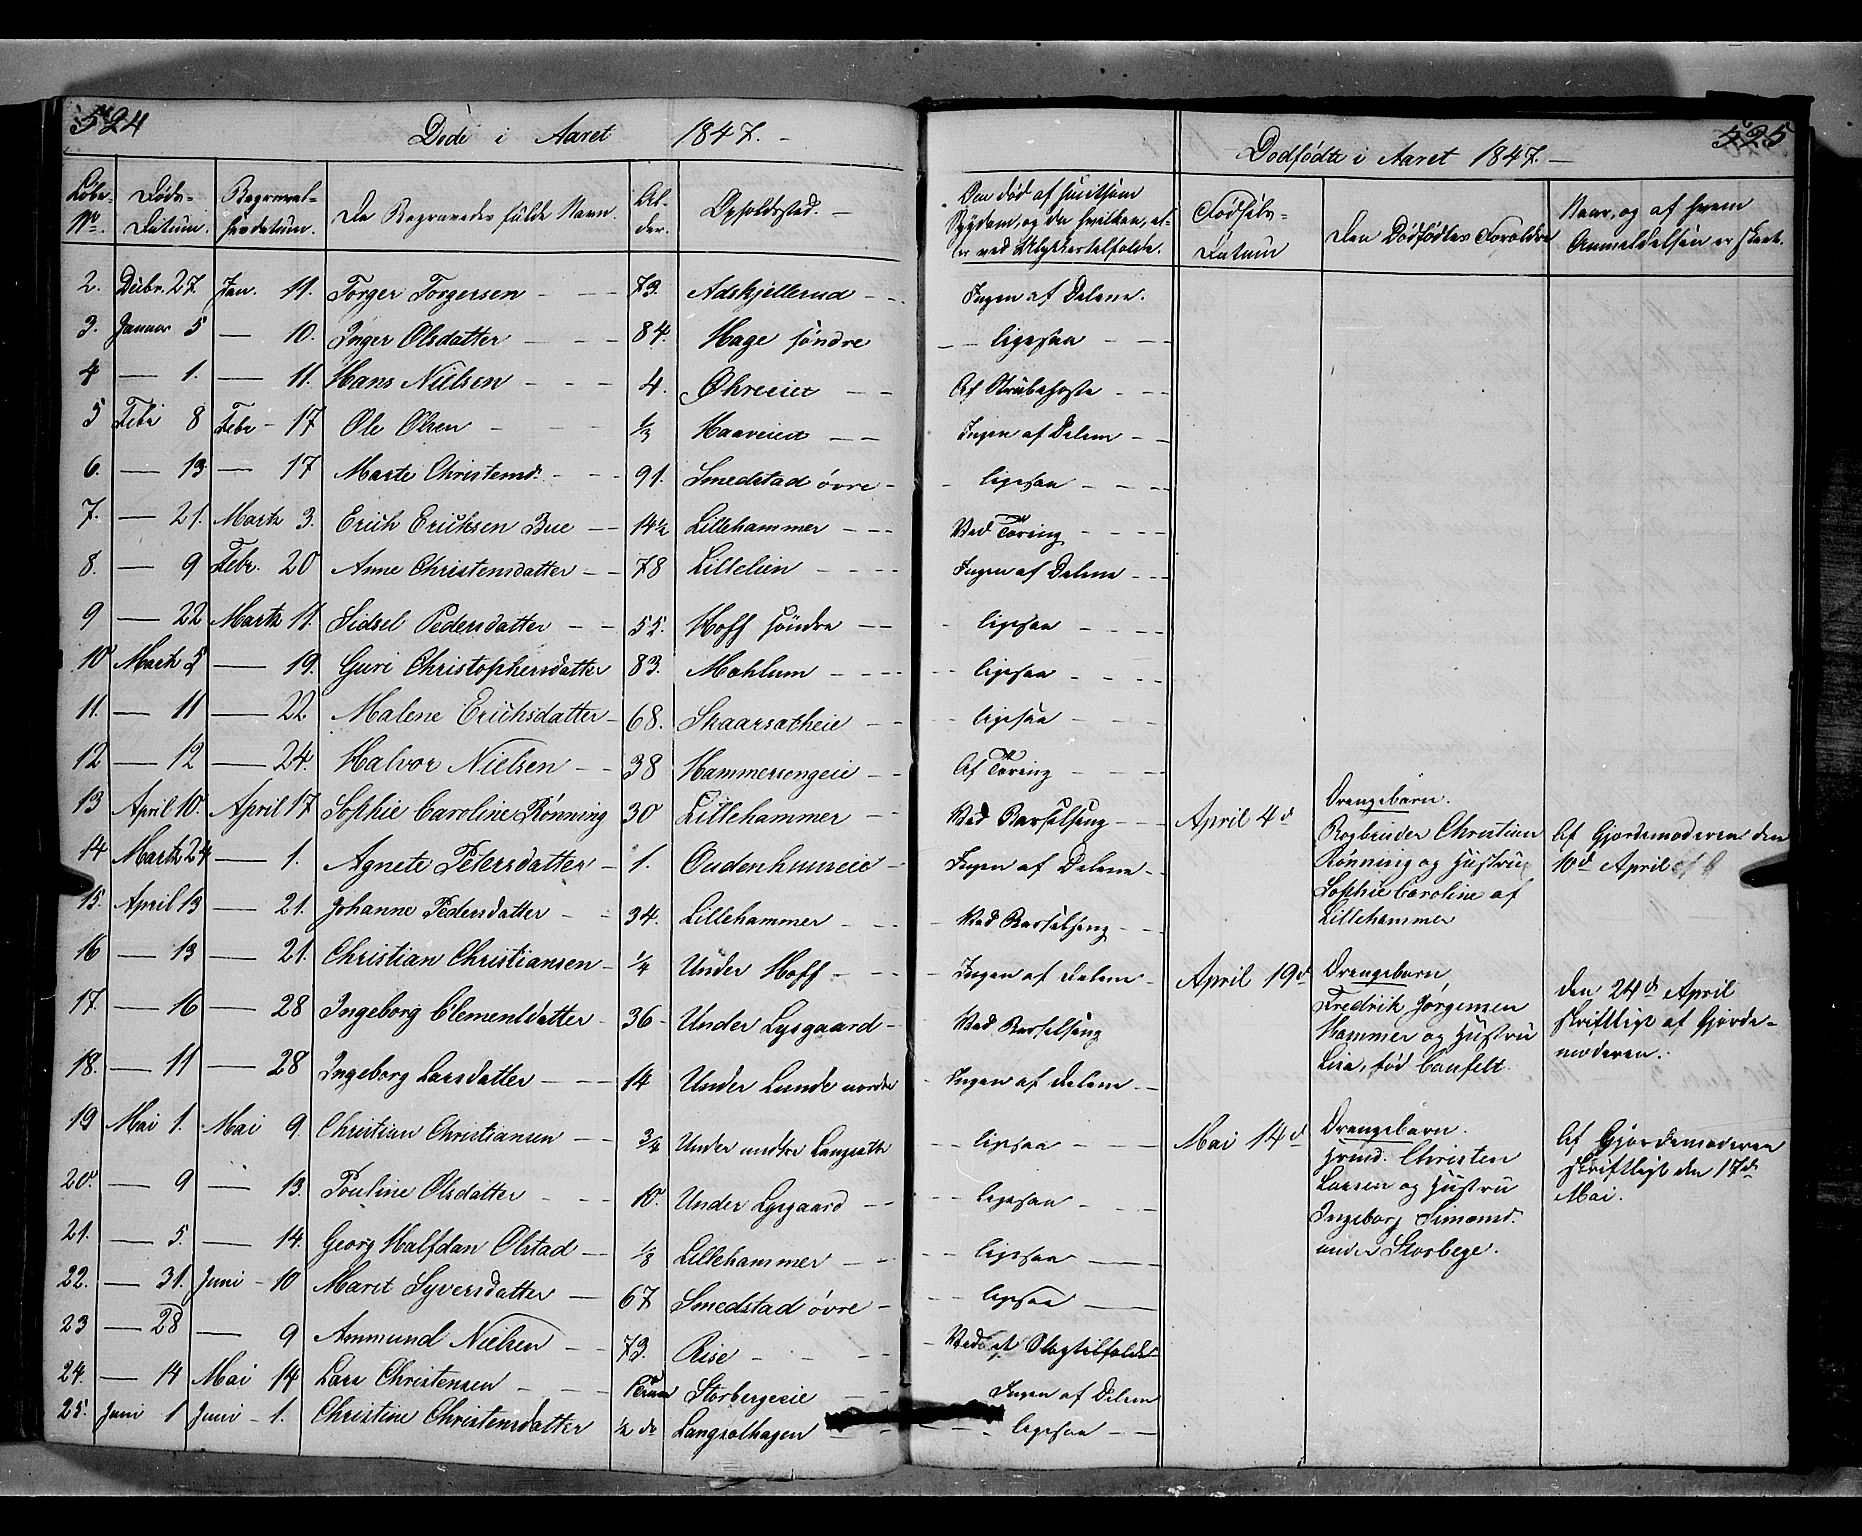 524
Døde i Aaret 1847. -
Løbe-No. Døds-Datum. Begravel-sesdatum. De Begravedes fulde Navn. Al-der. Opholdssted. -
Om død af
Sygdom, og da hvilken, el-
ler ved Ulykkestilfælde.
2. Decbr. 27. Jan. 11. Torger Torgersen - - - 73. Adskjellerud - - - Ingen af Delene.
3. Januar 5 — 10. Inger Olsdatter - - - 84. Hage søndre - - ligesaa - - -
4 — 1. — 11. Hans Nielsen - - - 4. Ohreeiet - - Af Strubehoste - - -
5 Feb. 8 Febr - 17 Ole Olsen - - - 1/3 Haaveiet - - Ingen af Delene - -
6. — 13 — 17 Marte Christensd. - - 91. Smedstad øvre - - ligesaa - - -
7. — 21. Marts 3. Erich Erichsen Bue - - 14 1/2 Lillehammer - - - Ved Tæring - - - -
8. — 9 Febr. 20 Anne Christensdatter - - 78 Lillelien - - - - Ingen af Delene - - -
9 — 22 Marts 11. Sidsel Pedersdatter - - 55. Hoff søndre - - - ligesaa - - - -
10 Marts 5 — 19. Guri Christophersdatter 83. Mæhlum - - - - - - ligesaa - - - -
11. — 11 — 22 Malene Erichsdatter - 68. Skaarsætheie - - - ligesaa - - - -
12 — 12 — 24. Halvor Nielsen - - 38 Hammersengeie - - Af Tæring - - - -
13 April 10. April 17 Sophie Caroline Rønning 30 Lillehammer - - Ved Barselseng - - -
14 Marts 24 — 1. Agnete Petersdatter - 1. Oudenhuuseie - Ingen af Delene - -
15. April 13 — 21. Johanne Pedersdatter - - 34. Lillehammer - - - Ved Barselseng - - -
16 — 13 — 21. Christian Christiansen - 1/4 Under Hoff - - - - Ingen af delene -
17. — 16 — 28 Ingeborg Clementsdatter - 36 - Under Lysgaard - Ved Barselseng
18. — 11 — 28 Ingeborg Larsdatter - - - 14 Under Lunde nordre - Ingen af delene - -
19 Mai 1. Mai 9. Christian Christiansen - - 3/4 Under nedre Langsæth - ligesaa - - -
20. — 9 — 13. Pouline Olsdatter - - - 10. Under Lysgaard - - - - ligesaa - - - -
21. — 5. — 14. Georg Halfdan Olstad - - 1/3 Lillehammer - - - - ligesaa ——
22. — 31. Juni - 10 Marit Syversdatter - - 67 Smedstad øvre - - - ligesaa ——
23 — 28 — 9 Ammund Nielsen - 73. Rise - - - - - - Ved et Slagtilfælde
24. — 14 Mai 14 Lars Christensen - - - Storbergeeie - - Ingen af Delene
25. Juni 1 Juni - 1. Christine Christensdatter 1/2 do Langsethagen - - - ligesaa - -
525
Dødfødte i Aaret 1847. -
Fødsels-Datum Den Dødfødtes Forældre Naar, og af hvem
Anmeldelsen er skeet.
April 4d
Drengebarn.
Bogbinder Christian
Rønning og Hustru
Sophie Caroline af
Lillehammer
Af Gjordemoderen den
10d April
April 19d
Drengebarn
Fredrik Jørgensen
Hammer og Hustru
Lisa, fød
den 24d April
skriftligt af Gjorde-
moderen.
Mai 14d
Drengebarn.
Huusmd. Christen
Larsen og Hustru
Ingeborg Simensd.
under Storberge.
Af Gjordemoderen
skriftligt den 17d
Mai.